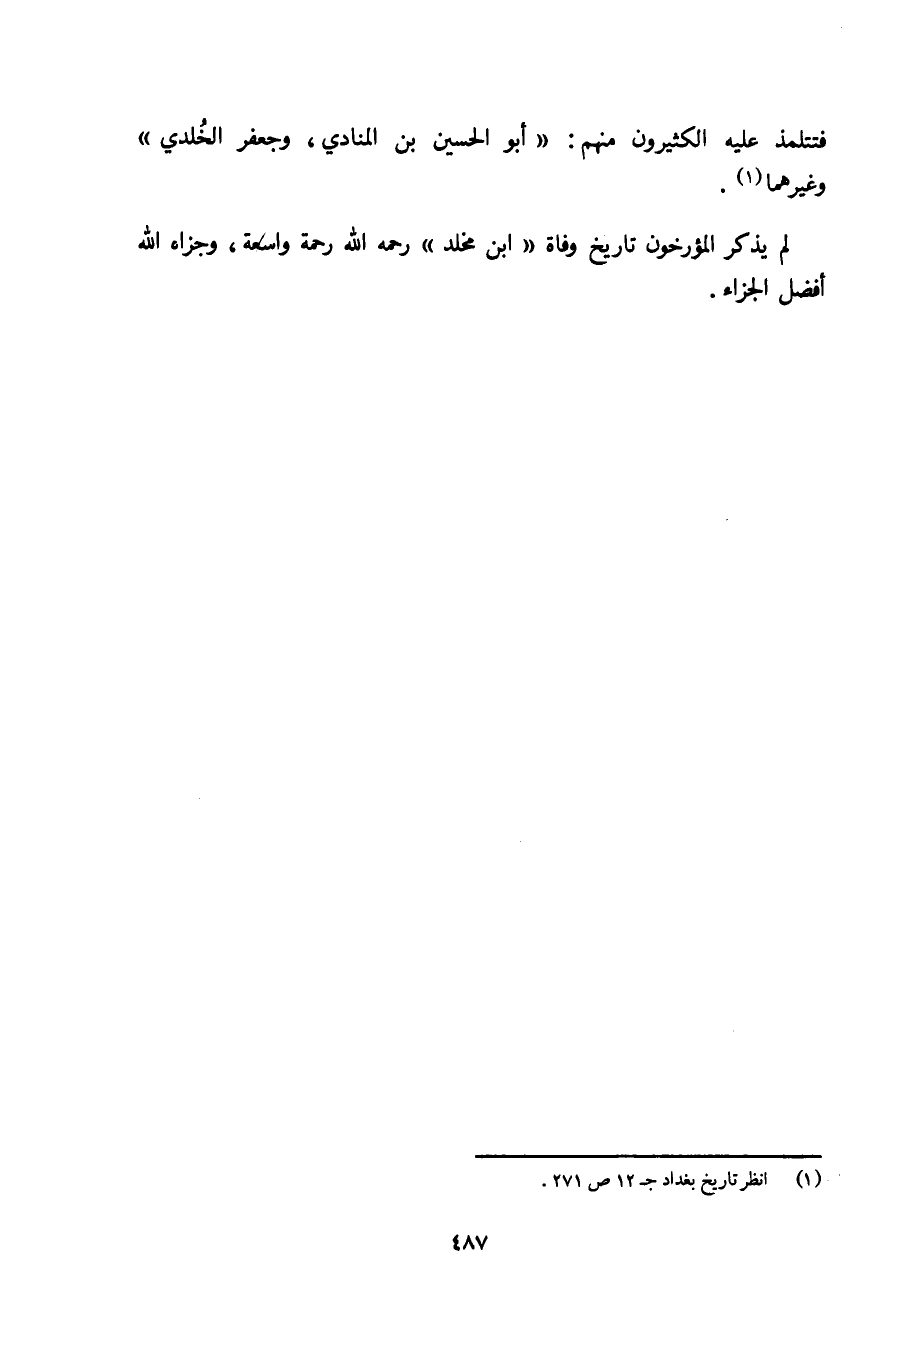 فتتلمذ عليه الكثيرون منهم : « أبو الحسين بن المنادي ، وجعفر الخُلدي »
وغيرهما (١) .
لم يذكر المؤرخون تاريخ وفاة « ابن مخلد » رحمه الله رحمة واسعة ، وجزاه الله
أفضل الجزاء .
(١) انظر تاريخ بغداد جـ ١٢ ص ٢٧١ .
٤٨٧